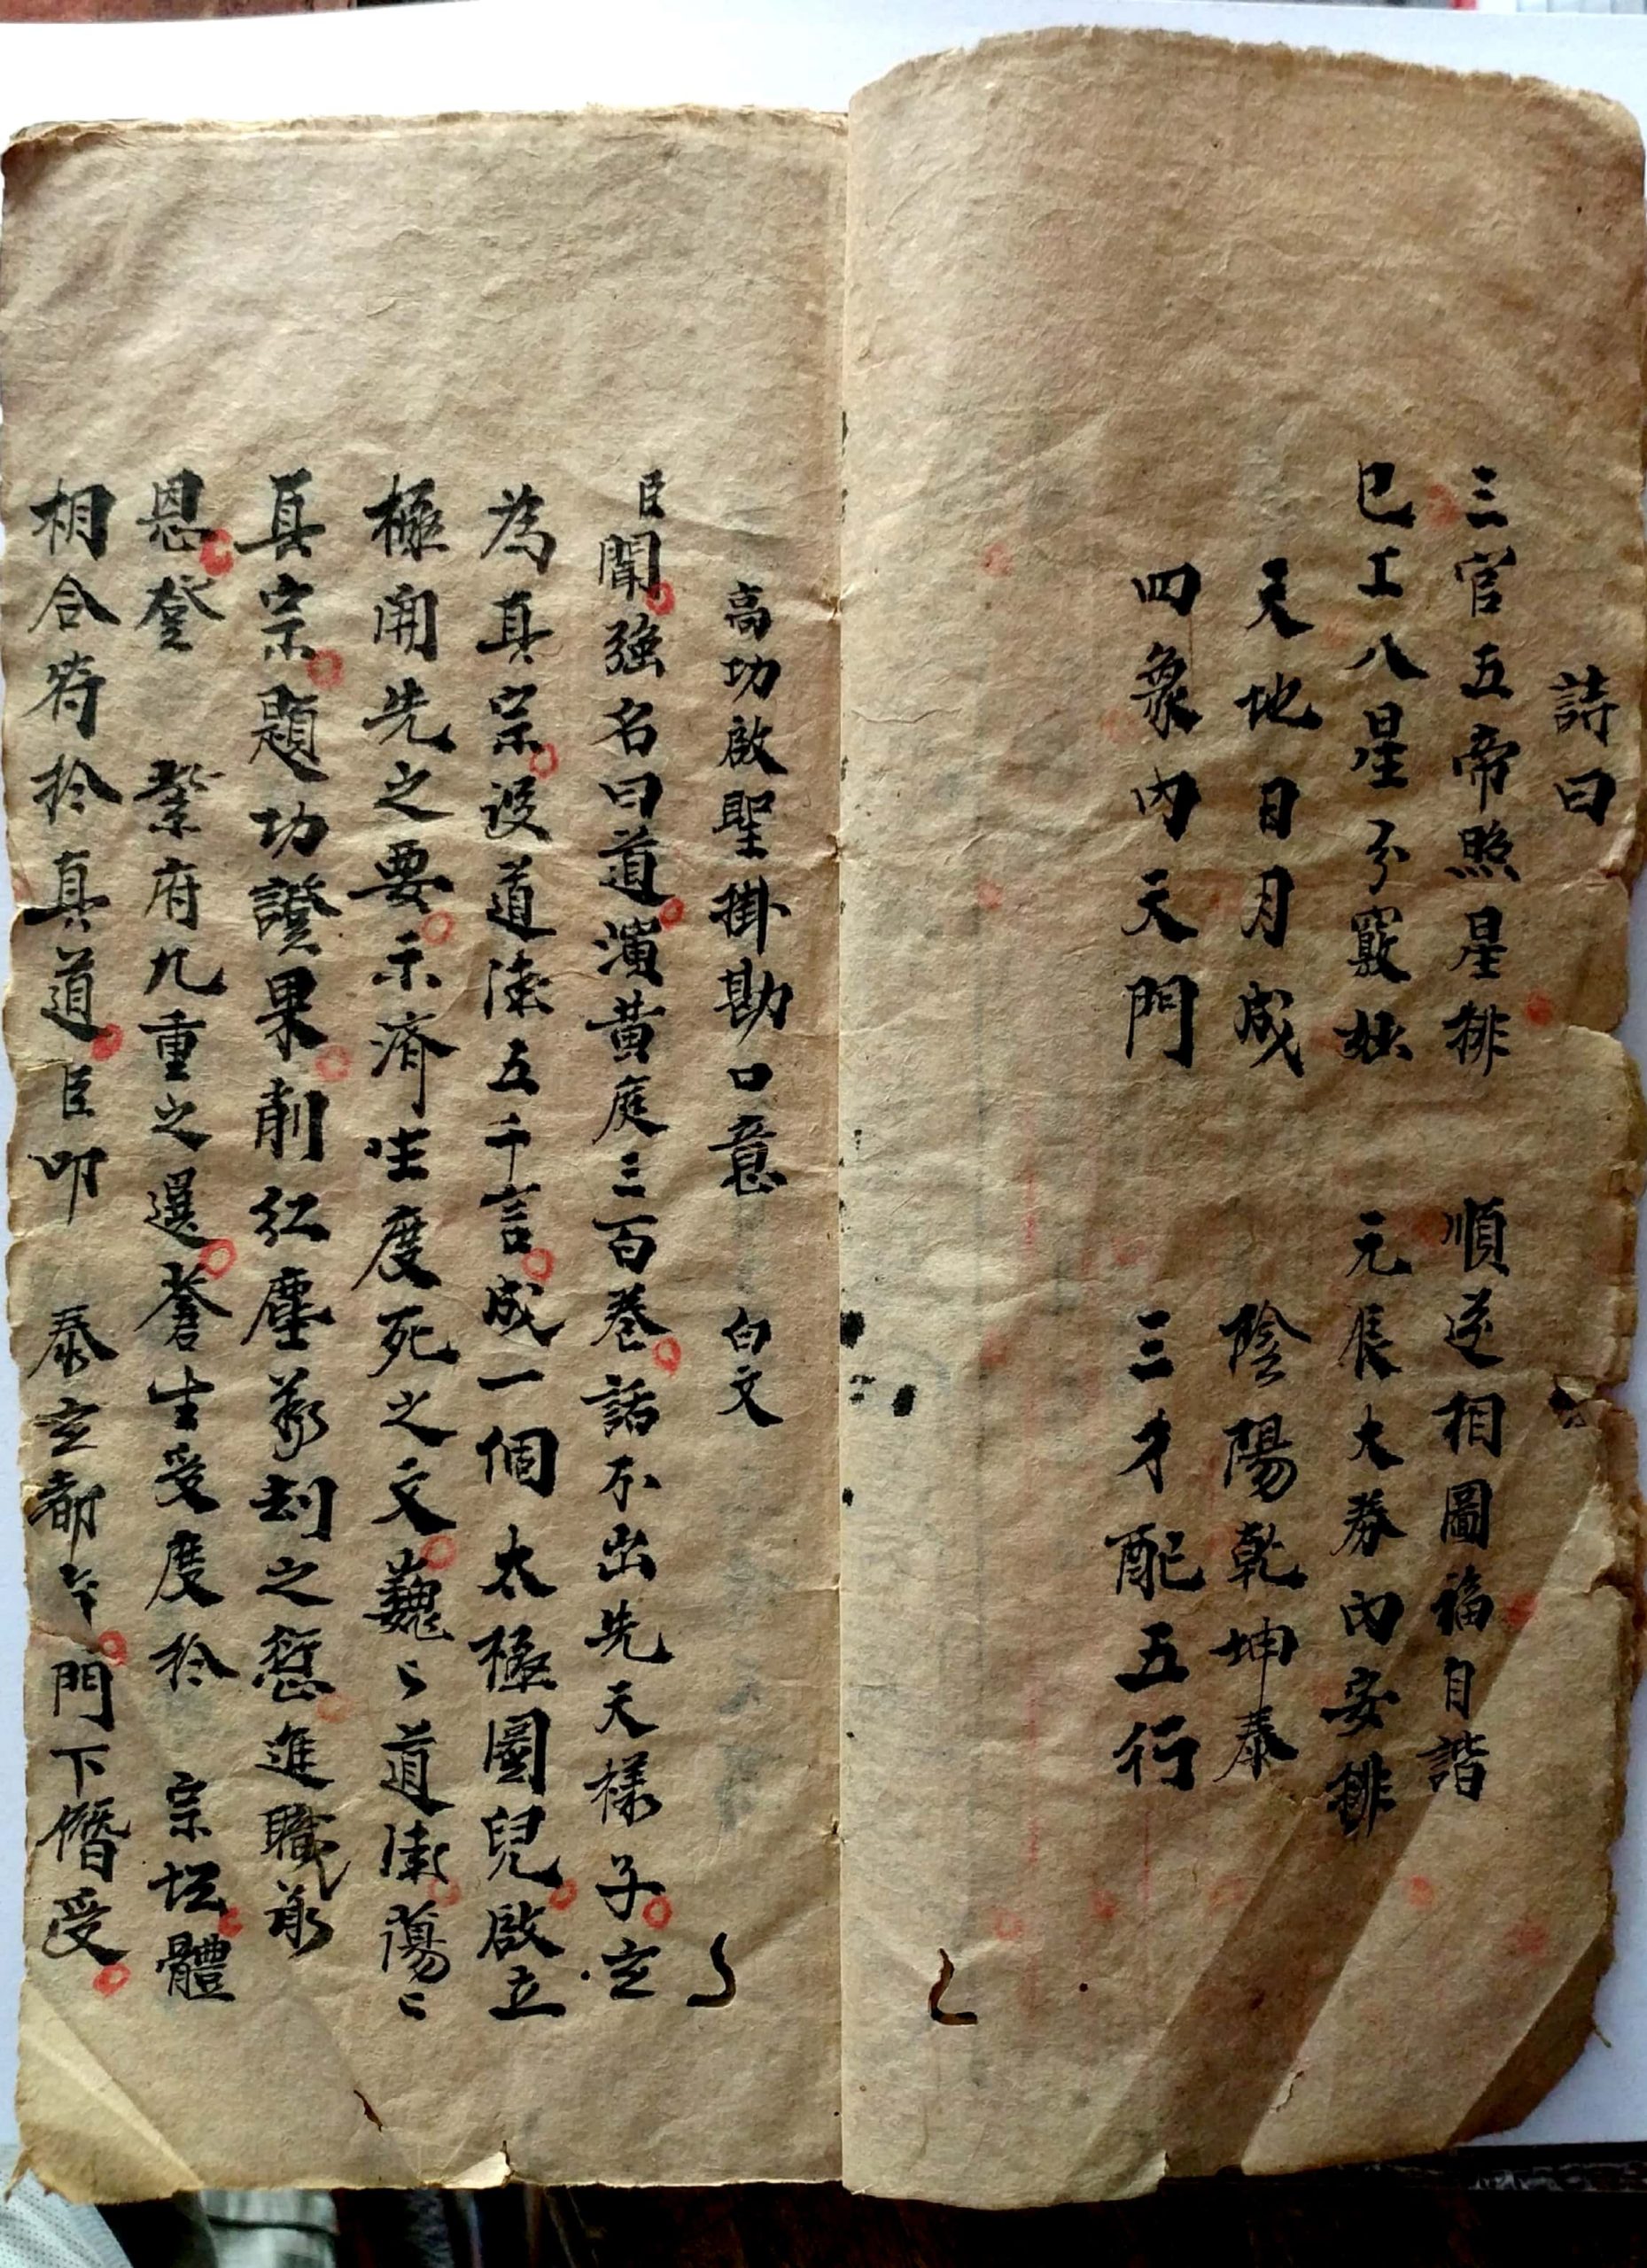 詩曰
三官五帝照星排　順逆相圖福自諧
巳工八星分竅妙　元辰大券內安排
天地日月成　陰陽乾坤泰
四象內天門　三才配五行
高功啟聖掛勘口意　白文
臣聞強名曰道演黃庭三百卷話不出先天樣子玄
為真宗設道法五千言成一個太極圖兒啟立
極開先之要示濟生度死之文巍〻道法蕩〻
真宗題功證果削紅塵萬刼之愆進職蒙
恩登　紫府九重之選蒼生受度扵　宗坛體
相合符扵真道臣叩　泰玄都　門下僭受